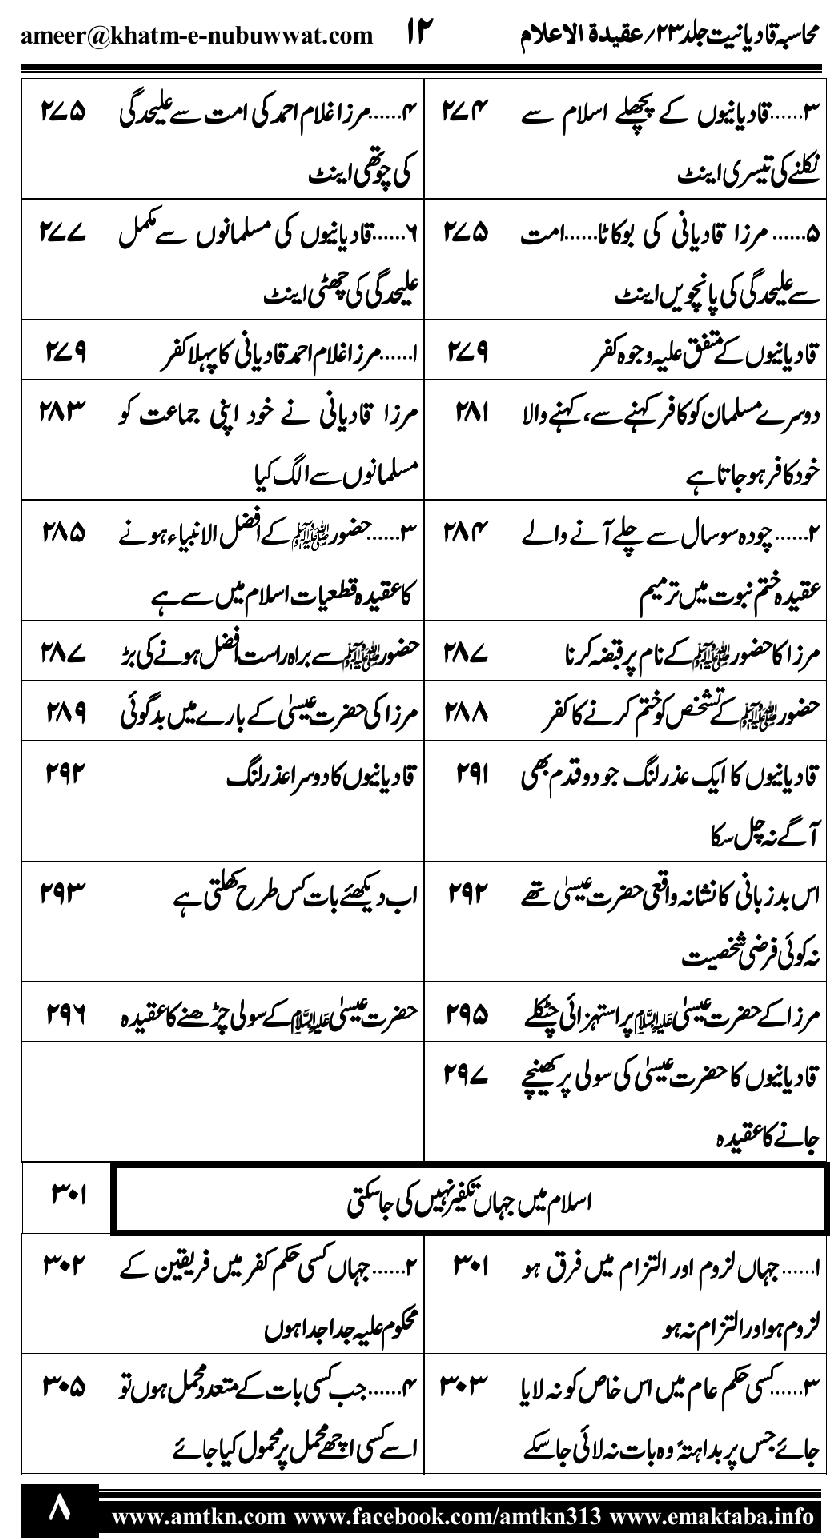 محاسبہ قادیانیت جلد ۲۳/ عقیدۃ الاعلام ۱۲ ameer@khatm-e-nubuwwat.com
۳......قادیانیوں کے پچھلے اسلام سے ۲۷۴
نکلنے کی تیسری اینٹ
۴......مرزا غلام احمد کی امت سے علیحدگی ۲۷۵
کی چوتھی اینٹ
۵......مرزا قادیانی کی بوکاٹا......امت ۲۷۵
سے علیحدگی کی پانچویں اینٹ
۶......قادیانیوں کی مسلمانوں سے مکمل ۲۷۷
علیحدگی کی چھٹی اینٹ
قادیانیوں کے متفق علیہ وجوہ کفر ۲۷۹
۱......مرزا غلام احمد قادیانی کا پہلا کفر ۲۷۹
دوسرے مسلمان کو کافر کہنے سے، کہنے والا ۲۸۱
خود کافر ہو جاتا ہے
مرزا قادیانی نے خود اپنی جماعت کو ۲۸۳
مسلمانوں سے الگ کیا
۲......چودہ سو سال سے چلے آنے والے ۲۸۴
عقیدہ ختم نبوت میں ترمیم
۳......حضور ﷺ کے افضل الانبیاء ہونے ۲۸۵
کا عقیدہ قطعیات اسلام میں سے ہے
مرزا کا حضور ﷺ کے نام پر قبضہ کرنا ۲۸۷
حضور ﷺ سے براہ راست افضل ہونے کی بڑ ۲۸۷
حضور ﷺ کے تشخص کو ختم کرنے کا کفر ۲۸۸
مرزا کی حضرت عیسیٰ کے بارے میں بدگوئی ۲۸۹
قادیانیوں کا ایک عذر لنگ جو دو قدم بھی ۲۹۱
آگے نہ چل سکا
قادیانیوں کا دوسرا عذر لنگ ۲۹۲
اس بدزبانی کا نشانہ واقعی حضرت عیسیٰ تھے ۲۹۲
نہ کوئی فرضی شخصیت
اب دیکھئے بات کس طرح کھلتی ہے ۲۹۳
مرزا کے حضرت عیسیٰ علیہ السلام پر استہزائی چٹکلے ۲۹۵
حضرت عیسیٰ علیہ السلام کے سولی چڑھنے کا عقیدہ ۲۹۶
قادیانیوں کا حضرت عیسیٰ کی سولی پر کھینچے ۲۹۷
جانے کا عقیدہ
اسلام میں جہاں تکفیر نہیں کی جاسکتی ۳۰۱
۱......جہاں لزوم اور التزام میں فرق ہو ۳۰۱
لزوم ہو اور التزام نہ ہو
۲......جہاں کسی حکم کفر میں فریقین کے ۳۰۲
محکوم علیہ جدا جدا ہوں
۳......کسی حکم عام میں اس خاص کو نہ لایا ۳۰۳
جائے جس پر بداہتہً وہ بات نہ لائی جاسکے
۴......جب کسی بات کے متعدد محمل ہوں تو ۳۰۵
اسے کسی اچھے محمل پر محمول کیا جائے
۸ www.amtkn.com www.facebook.com/amtkn313 www.emaktaba.info